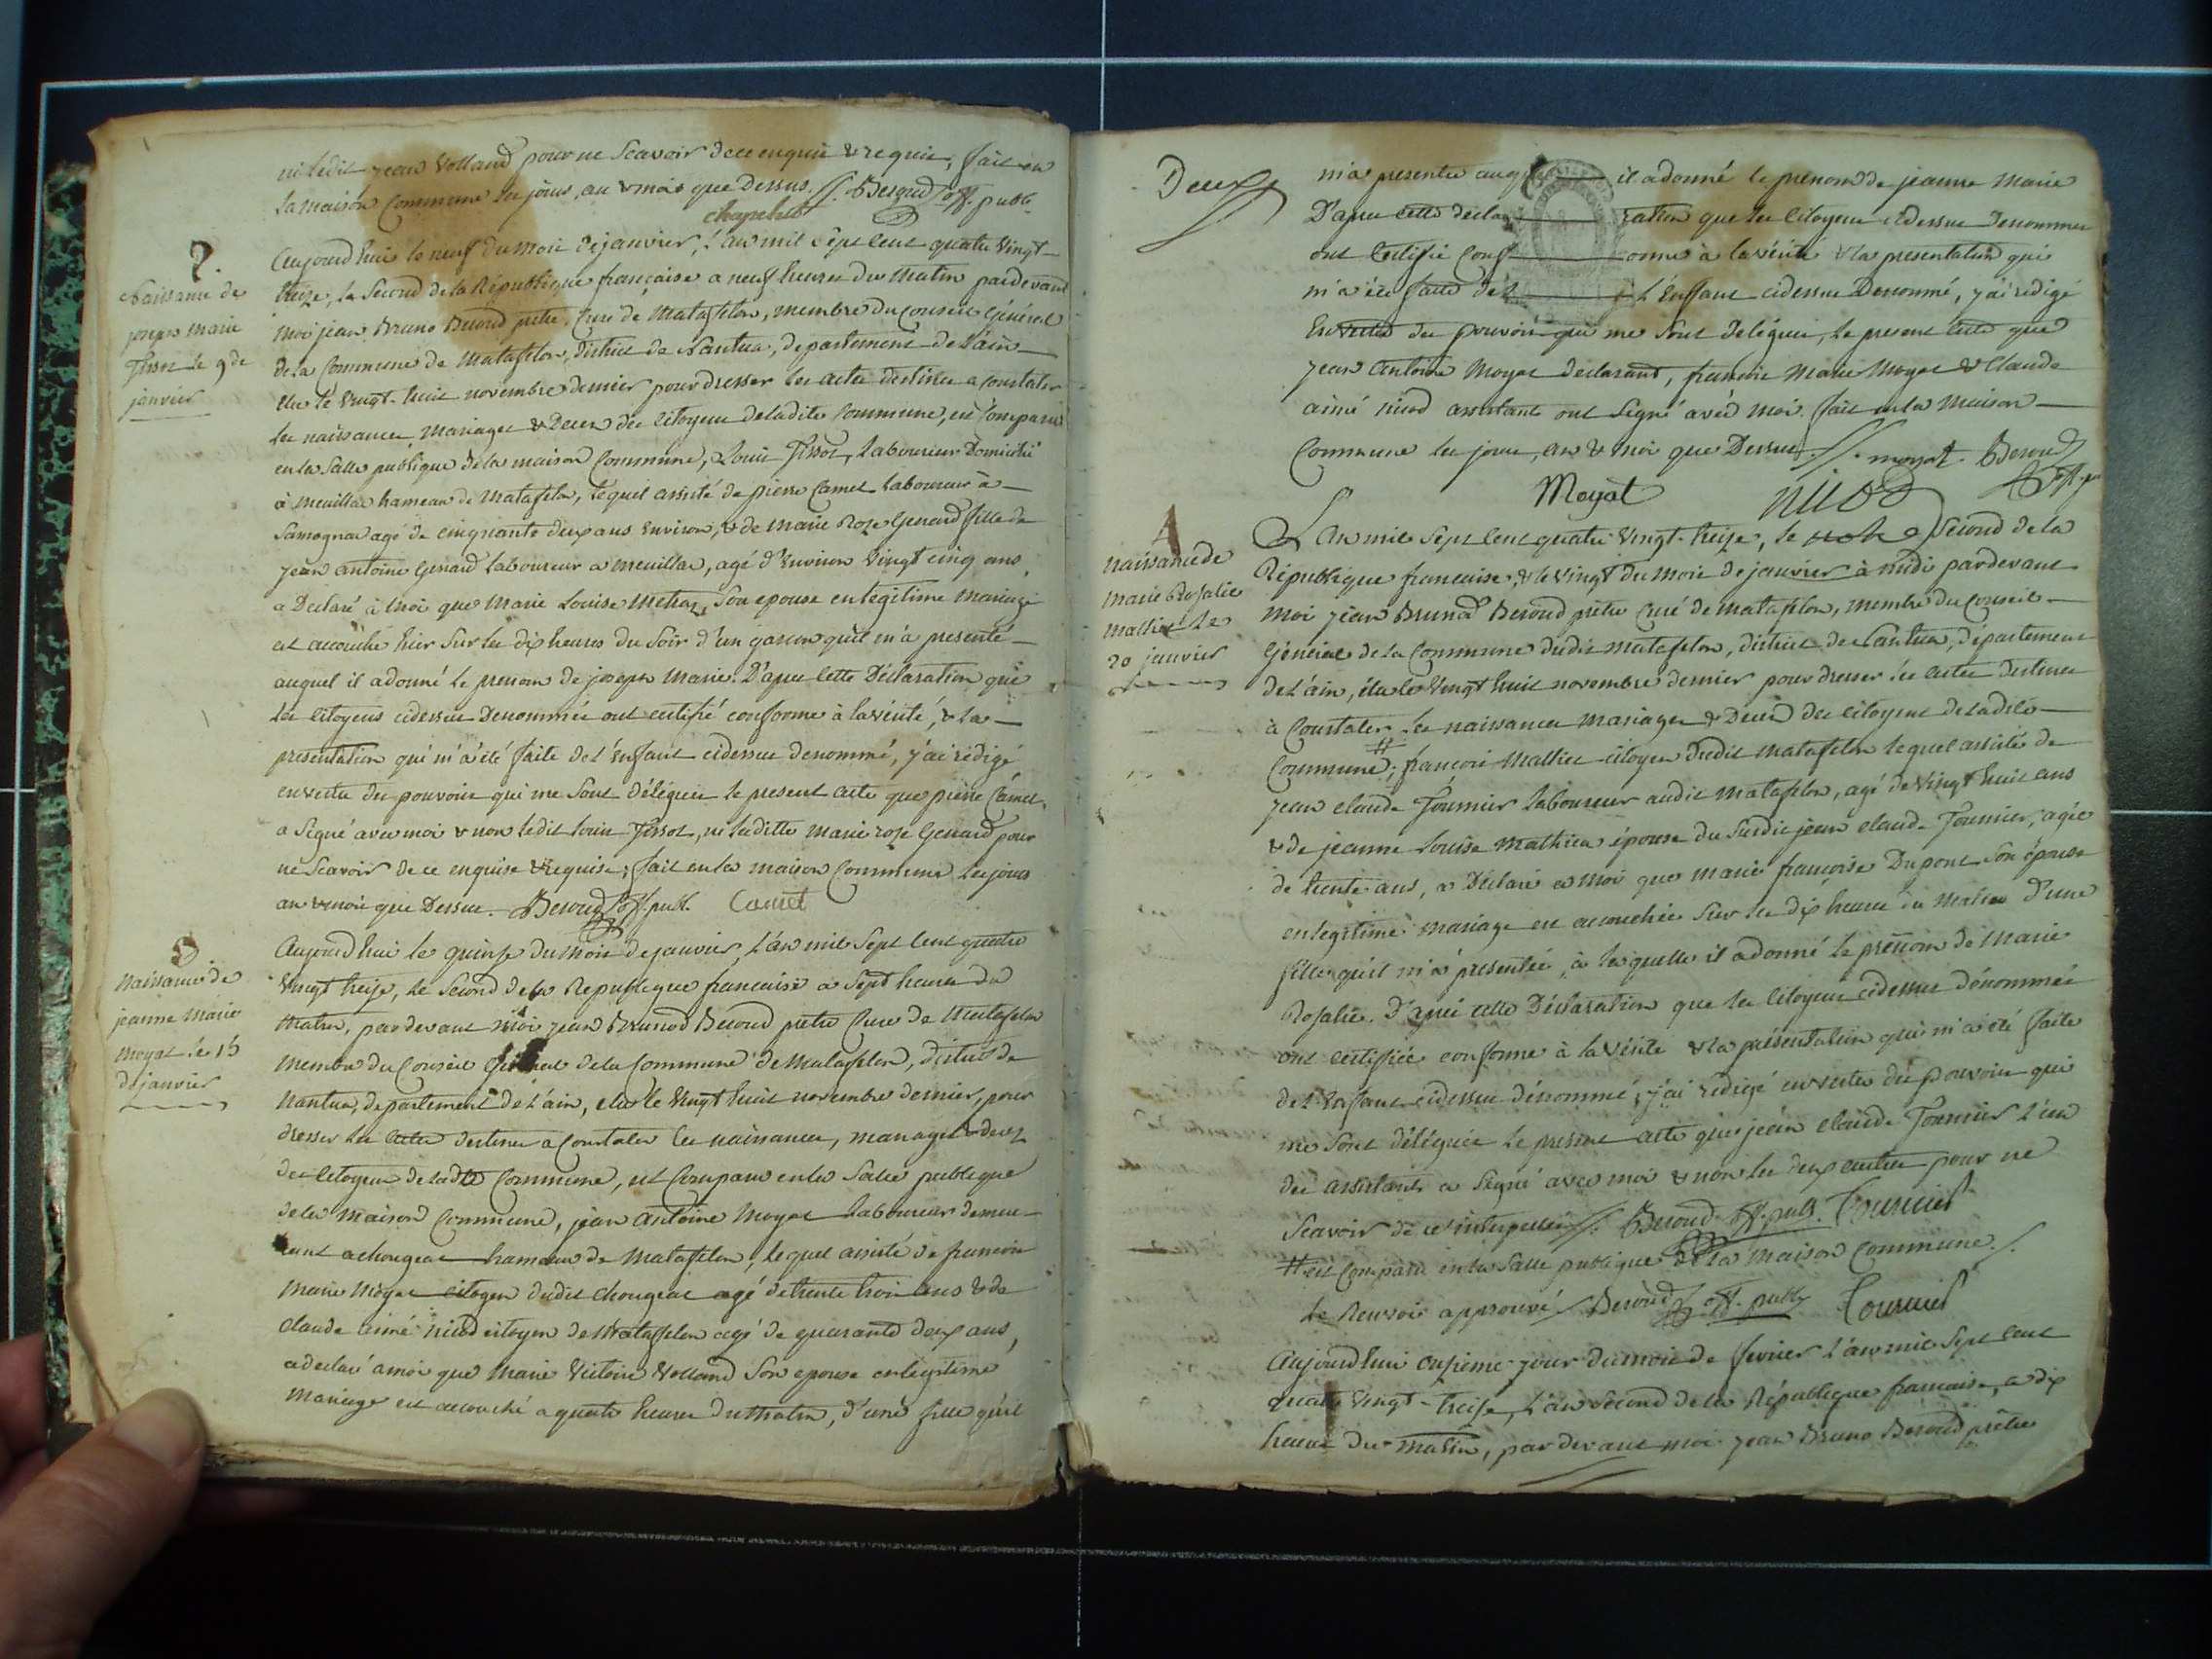 ni ledit jean Volland pour ne Scavoir de ce enquis & requis, fait en
la maison Commune les jours, an & mois que Dessus. Beroud off. publ.
chapelut
2.
Naissance de
joseph marie
Tissot le 9 de
janvier
Aujourd'hui le neuf du mois de janvier, l'an mil Sept Cent quatre Vingt
treize, le Second de la République française a neuf heures du Matin pardevant
moi jean Bruno Beroud pretre, Curé de Matafelon, membre du Conseil Général
de la Commune de Matafelon, district de Nantua, departement de l'ain
élu le Vingt-huit novembre dernier pour dresser les actes destinés a Constater
les naissances, Mariages & Deces des Citoyens de ladite Commune, est Comparu
en la Salle publique de la maison Commune, Louis Tissot, Laboureur Domicilié
à meuillac hameau de Matafelon, lequel assisté de pierre Camet Laboureur à
Samognac agé de cinquante deux ans Environ, & de Marie Rose Genard fille de
jean antoine Genard Laboureur a meuillac, agé d'Environ Vingt cinq ans,
a Declaré à moi que Marie Louise Metraz, Son epouse en legitime Mariage
est accouché hier Sur les dix heures du Soir d'un garcon qu'il m'a presenté
auquel il a donné le prenom de joseph Marie. D'apres Cette Déclaration que
les Citoyens cidessus Denommés ont certifié conforme à la vérité, & la
presentation qui m'a été faite de l'Enfant cidessus denommé, j'ai rédigé
en vertu des pouvoirs qui me Sont délégués le present acte que pierre Camet,
a Signé avec moi & non ledit Louis Tissot, ni laditte Marie roze Genard pour
ne Scavoir de ce enquise & requise; fait en la maison Commune les jours
an & mois que Dessus. Beroud off. publ. Camet
3
Naissance de
jeanne Marie
Moyat le 15
de janvier
Aujourd'hui le quinze du Mois de janvier, l'an mil Sept Cent quatre
Vingt treize, le Second de la Republique francaise a Sept heures du
Matin, pardevant Moi jean Brunod Beroud pretre Curé de Matafelon
membre du Conseil Général de la Commune de Matafelon, district de
Nantua, departement de l'ain, élu le Vingt huit novembre dernier, pour
dresser les actes destinés a Constater les naissances, mariages & deces
des Citoyens de ladte Commune, est Comparu en la Salle publique
de la Maison Commune, jean Antoine Moyat Laboureur demeu-
rant a chougeat hameau de Matafelon, lequel assisté de francois
Marie Moyat citoyen dudit chougeat agé de trente trois ans & de
claude aimé Niod citoyen de Matafelon agé de quarante deux ans,
a declaré a moi que Marie Victoire Volland Son epouse en legitime
Mariage est accouché a quatre heures du Matin, d'une fille qu'il
Deux
m'a presentée auq il a donné le prenom de jeanne Marie
D'apres cette decla ration que les Citoyens cidessus Denommés
ont Certifié Conf orme à la vérité & la presentation qui
m'a été faitte de l'Enffant cidessus Denommé, j'ai rédigé
En vertu des pouvoirs qui me Sont Délégués, le present acte que
jean Antoine Moyat declarant, francois Marie Moyat & Claude
aimé niod assistants ont Signé avec Moi. fait en la Maison
Commune les jours, an & mois que Dessus. moyat Beroud
Moyat niod off. p.
4
naissance de
marie Rosalie
Mathieu le
20 janvier
L'An mil Sept Cent quatre-Vingt-treize, le Second de la
République francaise, & le Vingt du Mois de janvier à midi pardevant
Moi jean Brunod Beroud pretre Curé de Matafelon, membre du Conseil
Général de la Commune dudit Matafelon, district de Nantua, département
de l'ain, élu le Vingt huit novembre dernier pour dresser les actes destinés
à Constater les naissances Mariages & Deces des citoyens de ladite
Commune, # francois Mathieu citoyen dudit Matafelon lequel assisté de
jean claude Tournier Laboureur audit Matafelon, agé de Vingt huit ans
& de jeanne Louise Mathieu épouse du Susdit jean claude Tournier, agée
de trente ans, a Déclaré a moi que marie francoise Dupont Son épouse
en legitime mariage est accouchée Sur les dix heures du Matin d'une
fille qu'il m'a presentée, à laquelle il a donné le prénom de Marie
Rosalie. D'après cette Déclaration que les Citoyens cidessus dénommés
ont certifiée conforme à la vérité & la présentation qui m'a été faite
de l'Enfant cidessus dénommé; j'ai rédigé en vertu des pouvoirs qui
me Sont délégués le present acte que jean claude Tournier l'un
des assistants a Signé avec moi & non les deux autres pour ne
Scavoir de ce interpellés. Beroud off. publ. Tournier
# est Comparu en la Salle publique de la Maison Commune.
Le Renvoi approuvé. Beroud off. publ. Tournier
Aujourd'hui onzieme jour du mois de fevrier l'an mil Sept Cent
quatre Vingt-treize, l'an Second de la République francaise, a dix
heures du Matin, par devant moi jean Bruno Beroud prêtre